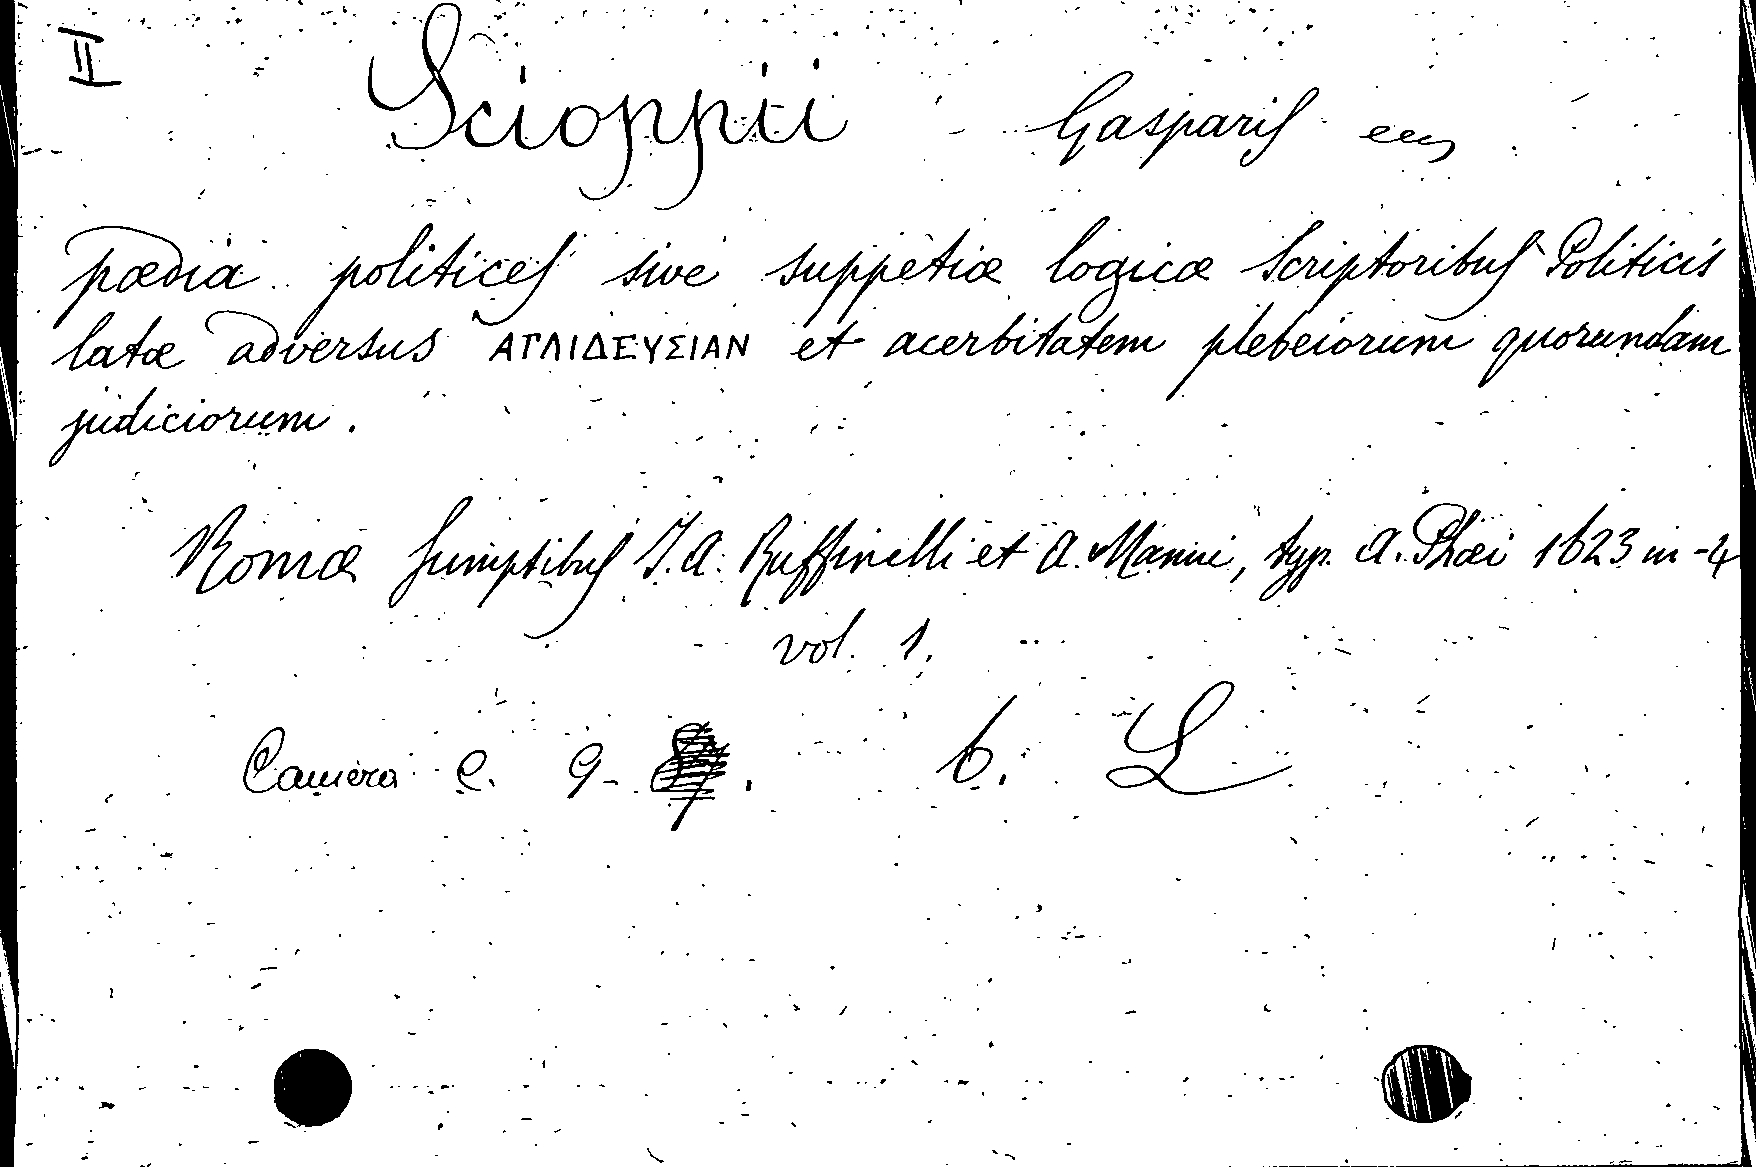 II
Scioppii Gasparis
pædia politices sive suppetiæ logicæ Scriptoribus Politicis
latæ adversus ΑΓΛΙΔΕΥΣΙΑΝ et acerbitatem plebeiorum quorundam
judiciorum.
Romæ sumptibus J. A. Ruffinelli et A. Manni, typ. A. Phæi 1623 in-4
vol. 1.
Camera e. 9- . b. L